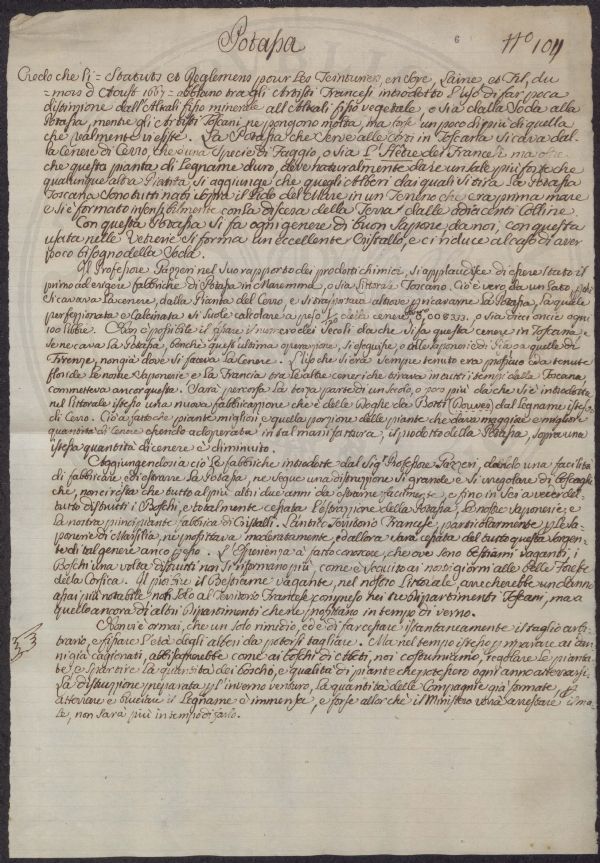 Potassa
6
N.o 101
Credo che li = Statuts et Reglemens pour Les Teinturiers, en Soye, Laine, et Fil, du
= mois d Aoust 1667 = abbiano tra gli Artisti Francesi introdotto l'uso di far poca
distinzione dall'Alkali fisso minerale all'Alkali fisso vegetale, o sia dalla Soda alla
Potassa, mentre gli Artisti Toscani ne pongono molta, ma forse un poco di più di quella
che realmente vi esiste. La Potassa che serve alle Arti in Toscana si cava dal-
la Cenere di Cerro, che è una specie di Faggio, o sia L'Hêtre dei Francesi ma oltre
che questa pianta di Legname duro, deve naturalmente dare un sale più forte che
qualunque altra Pianta, si aggiunge che quegli Alberi dai quali si tira la Potassa
Toscana sono tutti nati sopra il Lido del Mare in un Terreno che era prima mare
e si è formato insensibilmente con la discesa della Terra dalle adiacenti Colline.
Con questa Potassa si fa ogni genere di buon Sapone da noi, con questa
usata nelle Vetrerie si forma un eccellente Cristallo, e ci induce al caso di aver
poco bisogno della Soda.
Il Professore Pazzeri nel suo rapporto dei prodotti chimici, si applaudisce di essere stato il
primo ad erigere fabbriche di Potassa in Maremma, o sia Littorale Toscano. Ciò è vero da un lato,
si cavava la cenere, dalla Pianta del Cerro, e si trasportava altrove per cavarne la Potassa, la quale
perfezionata e Calcinata si suole calcolare a peso della cenere 0,08333, o sia dieci oncie ogni
100 libbre. Non è possibile il fissare il numero dei secoli da che si fa questa cenere in Toscana e
se ne cava la Potassa, benchè quest'ultima operazione, si eseguisse o alle saponerie di Pisa o a quelle di
Firenze, non già dove si faceva la Cenere. L'uso che si era sempre tenuto era proficuo e da tenute
floride le nostre Saponerie e la Francia tra le altre ceneri che tirava in tutti i tempi dalla Toscana,
commetteva ancor questa. Sarà percorsa la terza parte di un secolo, o poco più da che si è introdotta
nel Littorale istesso una nuova fabbricazione che è delle Doghe da Botti (Douves) dal Legname istesso
di Cerro. Ciò ha fatto che piante migliori e quella porzione delle piante che dava maggiore e migliore
quantità di Cenere essendo adoperata in tal manifattura, il prodotto della Potassa, sopra una
istessa quantità di cenere è diminuito.
Aggiungendosi a ciò le fabbriche introdotte dal Sig.r Professore Pazzeri, dando una facilità
di fabbricare ed estrarre la Potassa, ne segue una distruzione sì grande e sì irregolare di boscaglie
che, non ci resta che tutto al più altri due anni da estrarne facilmente, e fino in sei a vedere del
tutto distrutti i Boschi, e totalmente cessata l'estrazione della Potassa, le nostre saponerie, e
la nostra principiante fabbrica di Cristalli. L'antico Territorio Francese, particolarmente per le Sa-
ponerie di Marsilia, ne profittava moderatamente, ed allora sarà cessata del tutto questa sorgen-
te di tal genere anco per esso. L'Esperienza à fatto conoscere, che ove sono bestiami vaganti, i
Boschi una volta distrutti non si riformano più, come è seguito ai nostri giorni alle belle Foreste
della Corsica. Il perdere il Bestiame vagante, nel nostro Littorale, arrecherebbe un danno
assai più notabile non solo al Territorio Francese compreso nei tre Dipartimenti Toscani, ma a
quello ancora di altri Dipartimenti che ne profittano in tempo di verno.
Non vi è ormai, che un solo rimedio, ed è di far cessare istantaneamente il taglio arbi-
trario, e fissare l'età degli alberi da potersi tagliare. Ma nel tempo istesso per riparare ai dan-
ni già cagionati, abbisognerebbe come ai boschi di Abeti, noi costumiamo, regolare le pianta-
te, e spartire la quantità dei boschi, e qualità di piante che potessero ogni anno atterrarsi.
La distruzione preparata per l'inverno venturo, la quantità delle Compagnie già formate, per
atterrare e bruciare il Legname è immensa, e forse allorchè il Ministro vorrà arrestare il ma-
le, non sarà più in tempo di farlo.